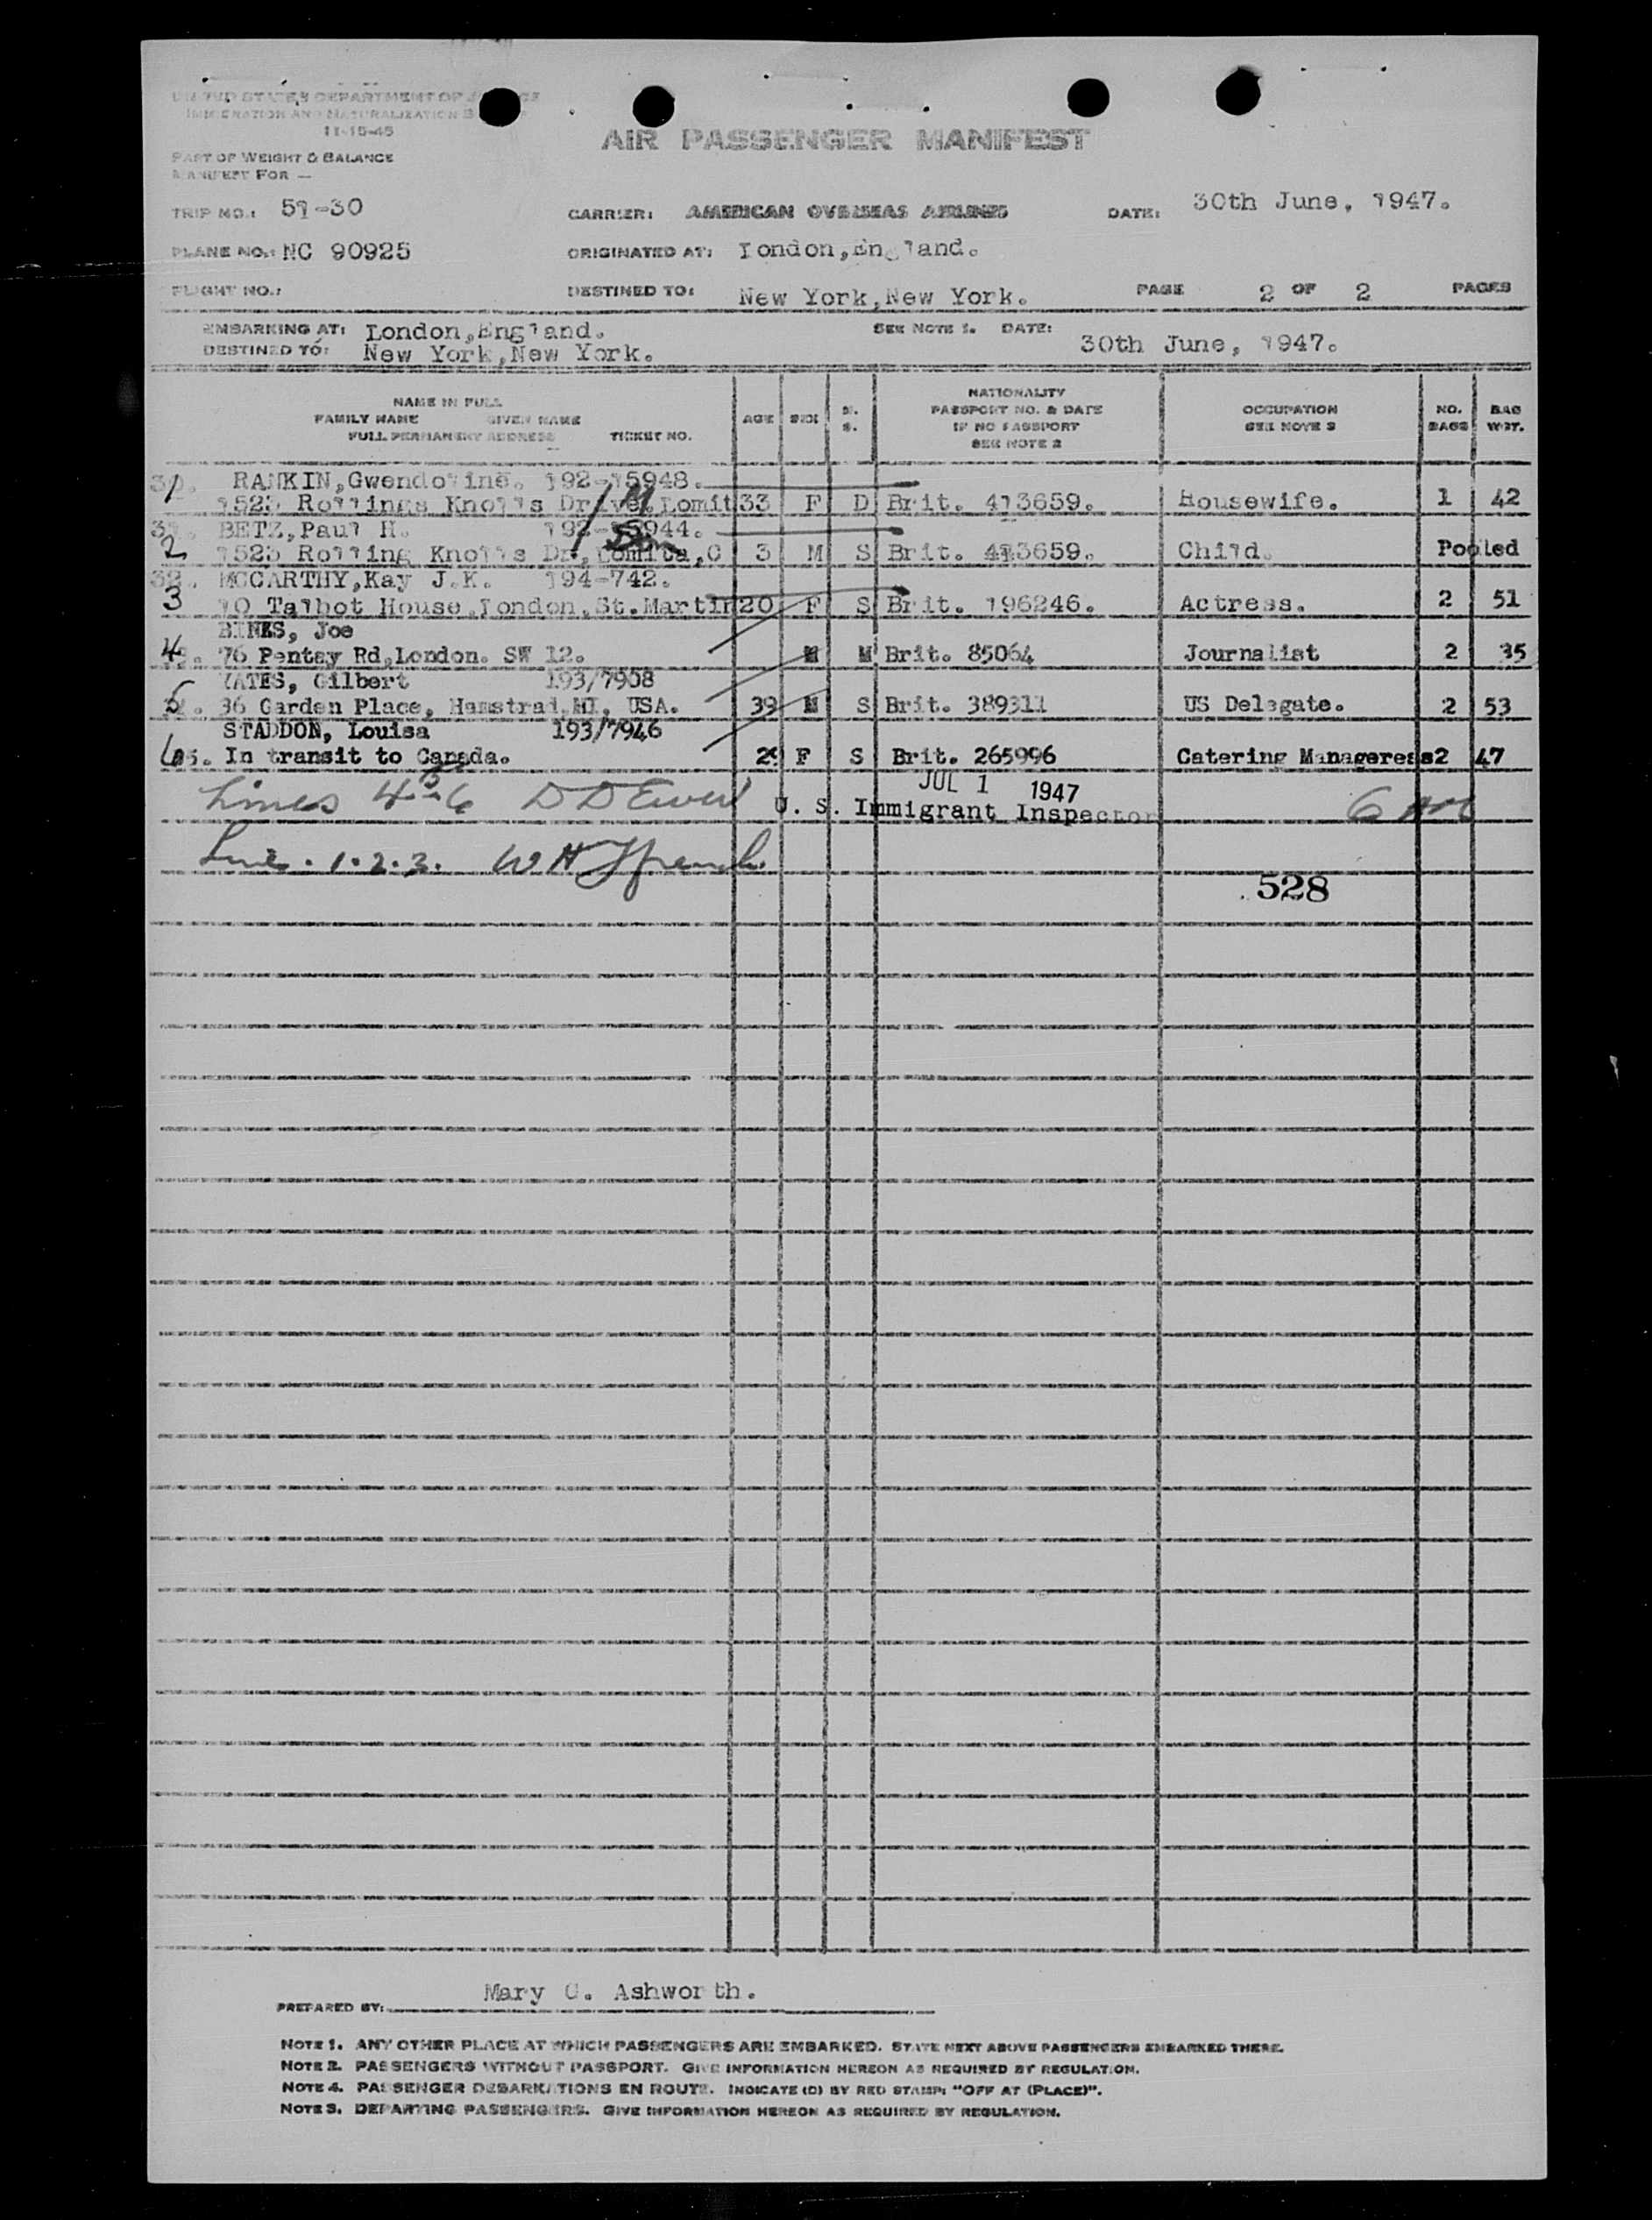 UNITED STATES DEPARTMENT OF
IMMIGRATION AND NATURALIZATION
11-15-45
AIR PASSENGER MANIFEST
PART OF WEIGHT & BALANCE
MANIFEST FOR —
TRIP NO.: 51-30 CARRIER: AMERICAN OVERSEAS AIRLINES DATE: 30th June, 1947.
PLANE NO.: NC 90925 ORIGINATED AT: London,England.
FLIGHT NO.: DESTINED TO: New York,New York. PAGE 2 OF 2 PAGES
EMBARKING AT: London,England. SEE NOTE 1. DATE: 30th June, 1947.
DESTINED TO: New York,New York.
NAME IN FULL
FAMILY NAME GIVEN NAME
FULL PERMANENT ADDRESS TICKET NO.
AGE SEX M. S.
NATIONALITY
PASSPORT NO. & DATE
IF NO PASSPORT
SEE NOTE 2
OCCUPATION
SEE NOTE 3
NO. BAGS
BAG WGT.
RANKIN,Gwendoline. 192-15948.
1 1523 Rollings Knolls Drive, Lomit 33 F D Brit. 413659. Housewife. 1 42
BETZ,Paul H. 192-15944.
2 1523 Rolling Knolls Dr, Lomita,C 3 M S Brit. 413659. Child. Pooled
32. MCCARTHY,Kay J.K. 194-742.
3 10 Talbot House,London,St.Martin 20 F S Brit. 196246. Actress. 2 51
BINES, Joe
4 76 Pentay Rd,London. SW 12. M M Brit. 85064 Journalist 2 35
YATES, Gilbert 193/7908
5 36 Garden Place, Hamstrad,MI, USA. 39 M S Brit. 389311 US Delegate. 2 53
STADDON, Louisa 193/7946
6 In transit to Canada. 29 F S Brit. 265996 Catering Manageress 2 47
Lines 4-6
JUL 1 1947
U. S. Immigrant Inspector
Line. 1.2.3.
528
PREPARED BY: Mary C. Ashworth.
NOTE 1. ANY OTHER PLACE AT WHICH PASSENGERS ARE EMBARKED. STATE NEXT ABOVE PASSENGERS EMBARKED THERE.
NOTE 2. PASSENGERS WITHOUT PASSPORT. GIVE INFORMATION HEREON AS REQUIRED BY REGULATION.
NOTE 4. PASSENGER DEBARKATIONS EN ROUTE. INDICATE (D) BY RED STAMP: "OFF AT (PLACE)".
NOTE 3. DEPARTING PASSENGERS. GIVE INFORMATION HEREON AS REQUIRED BY REGULATION.